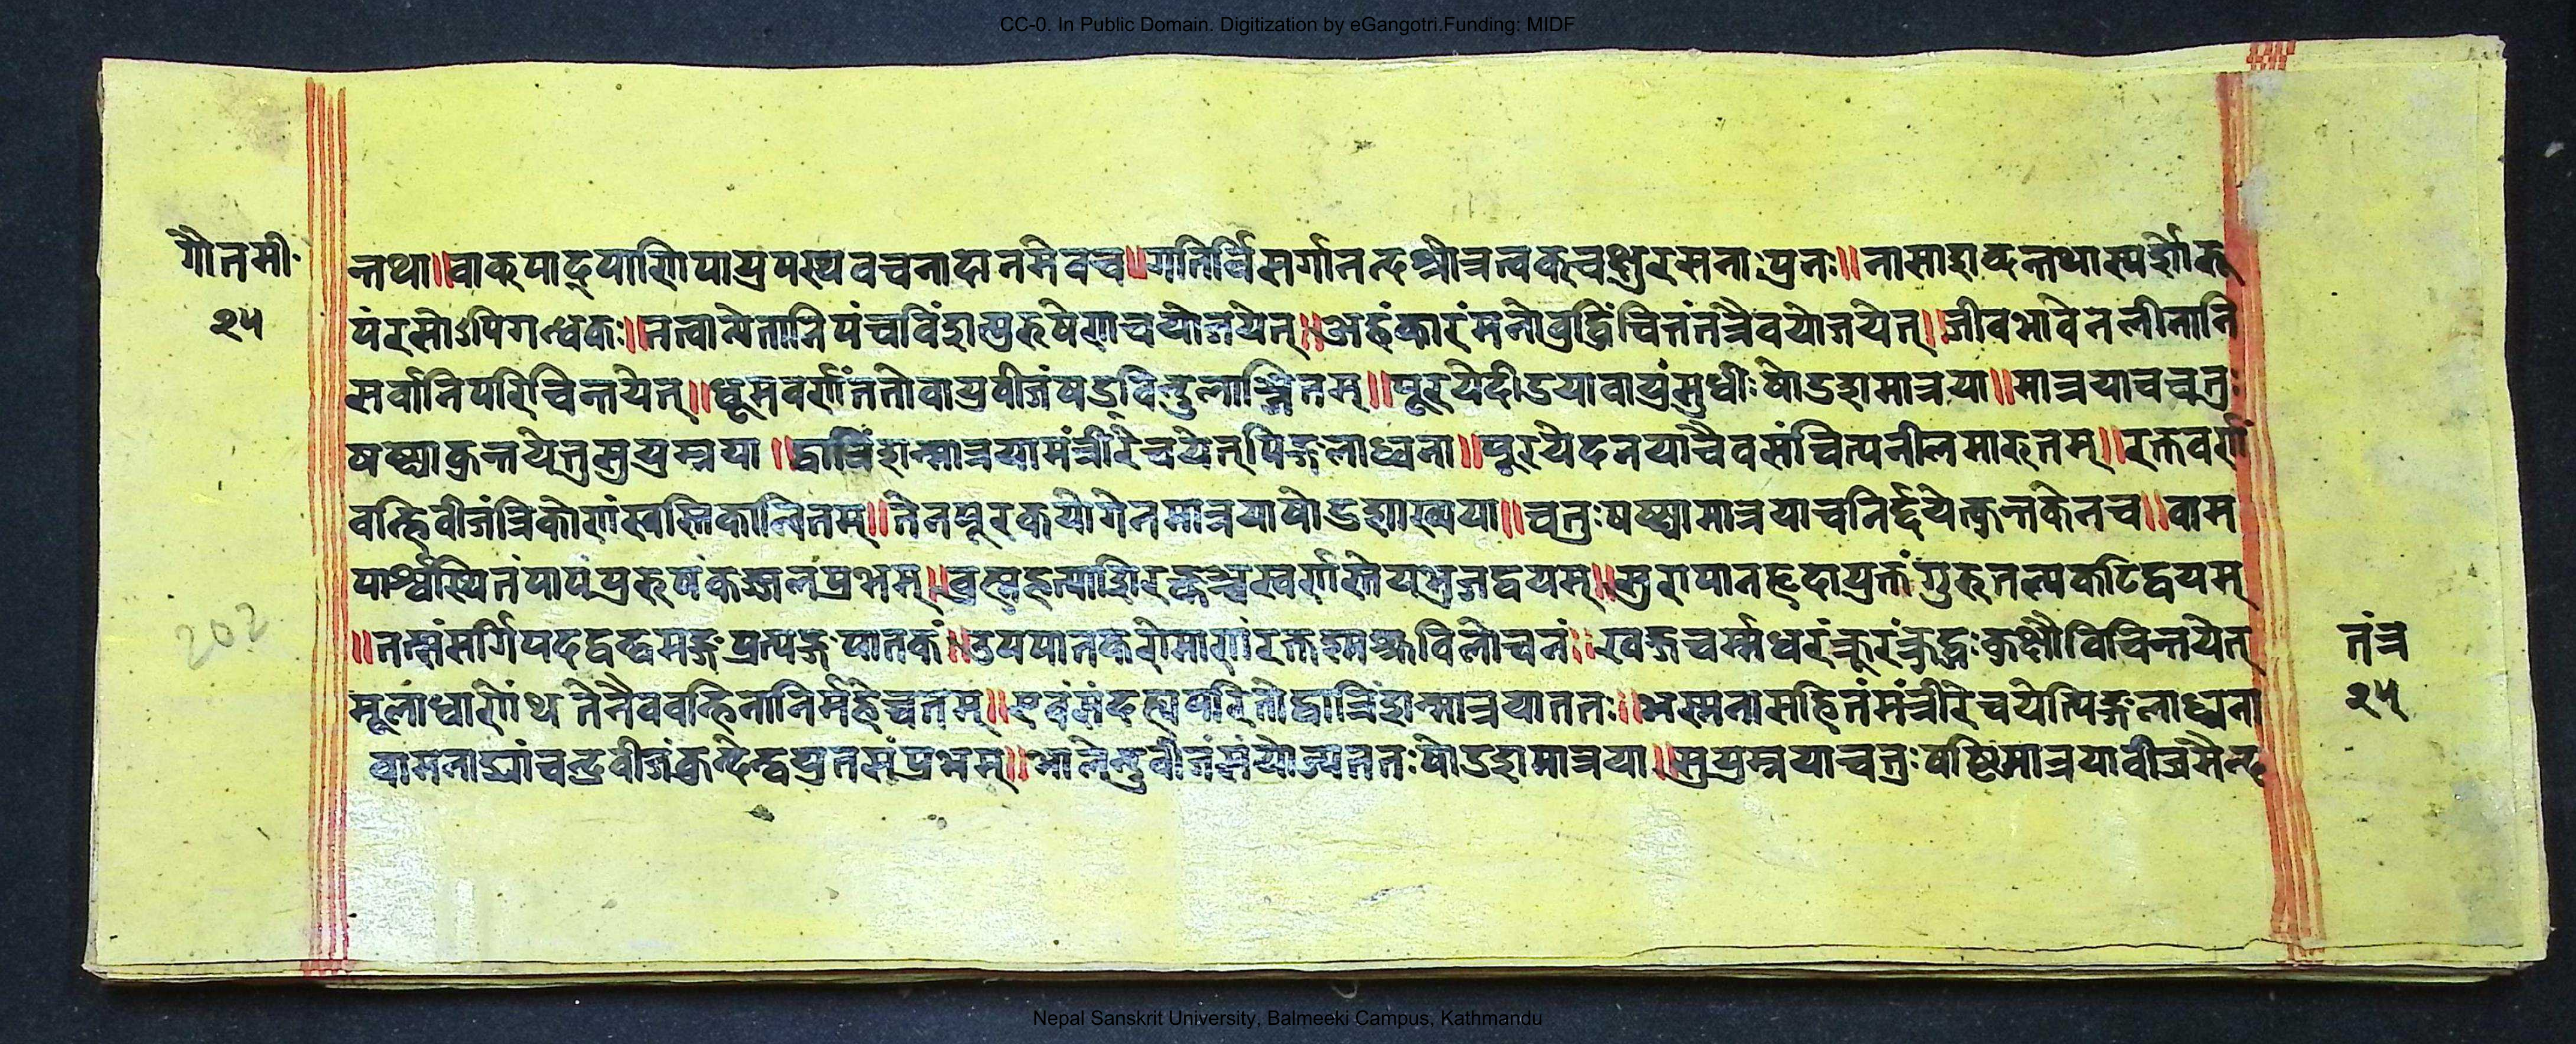 CC-0. In Public Domain. Digitization by eGangotri.Funding: MIDF
गौतमी
न्तथा॥वाक्पाद्पाणिपायुपस्थवचनादानमेवच॥गतिर्विसर्गानन्दश्रोत्रत्वक्चक्षुरसनाःपुनः॥नासाशब्दन्तथास्पर्शोरू
२५
पंरसोऽपिगन्धकः॥तत्वान्येतानिपंचविंशत्पुरुषेणचयोजयेत्॥अहंकारंमनोबुद्धिंचित्तंतत्रैवयोजयेत्॥जीवभावेनलीनानि
सर्वानिपरिचिन्तयेत्॥धूमवर्णंततोवायुवीजंषड्विन्दुलाञ्छितम्॥पूरयेदीडयावायुंसुधीःषोडशमात्रया॥मात्रयाचचतुः
षष्ट्याकुन्तयेत्तुसुयुम्नया॥द्वात्रिंशन्मात्रयामंत्रीरेचयेत्पिङ्गलाध्वना॥पूरयेदनयाचैवसंचित्यनीलमारुतम्॥रक्तवर्णं
वह्निवीजंत्रिकोणंस्वस्तिकान्वितम्॥तेनपूरकयोगेनमात्रयाषोडशाख्यया॥चतुःषष्ट्यामात्रयाचनिर्द्दयेत्कुन्तकेनच॥वाम
पार्श्वस्थितंपापंपुरुषंकज्जलप्रभम्॥ब्रह्महत्याशिरस्कञ्चस्वर्णस्तेयभुजद्वयम्॥सुरापानहृदायुक्तंगुरुतल्पकटिद्वयम्
202
॥तत्संसर्गिपदद्वन्द्वमङ्गप्रत्यङ्गपातकं॥उपपातकरोमाणंरक्तश्मश्रुविलोचनं॥खड्गचर्म्मधरंक्रूरंक्रुद्धःकुक्षौविचिन्तयेत्
तंत्र
मूलाधारोंथतेनैववह्निनानिर्महेच्चतम्॥एवंसंदह्यपरितोद्वात्रिंशन्मात्रयाततः॥भस्मनासहितंमंत्रीरेचयेत्पिङ्गलाध्वना
२५
वामनाड्यांचन्द्रवीजंकुन्देन्द्वयुतसंप्रभम्॥भालेन्दुवीजंसंयोज्यततःषोडशमात्रया॥सुयुम्नयाचतुःषष्टिमात्रयावीजमैन्द
Nepal Sanskrit University, Balmeeki Campus, Kathmandu